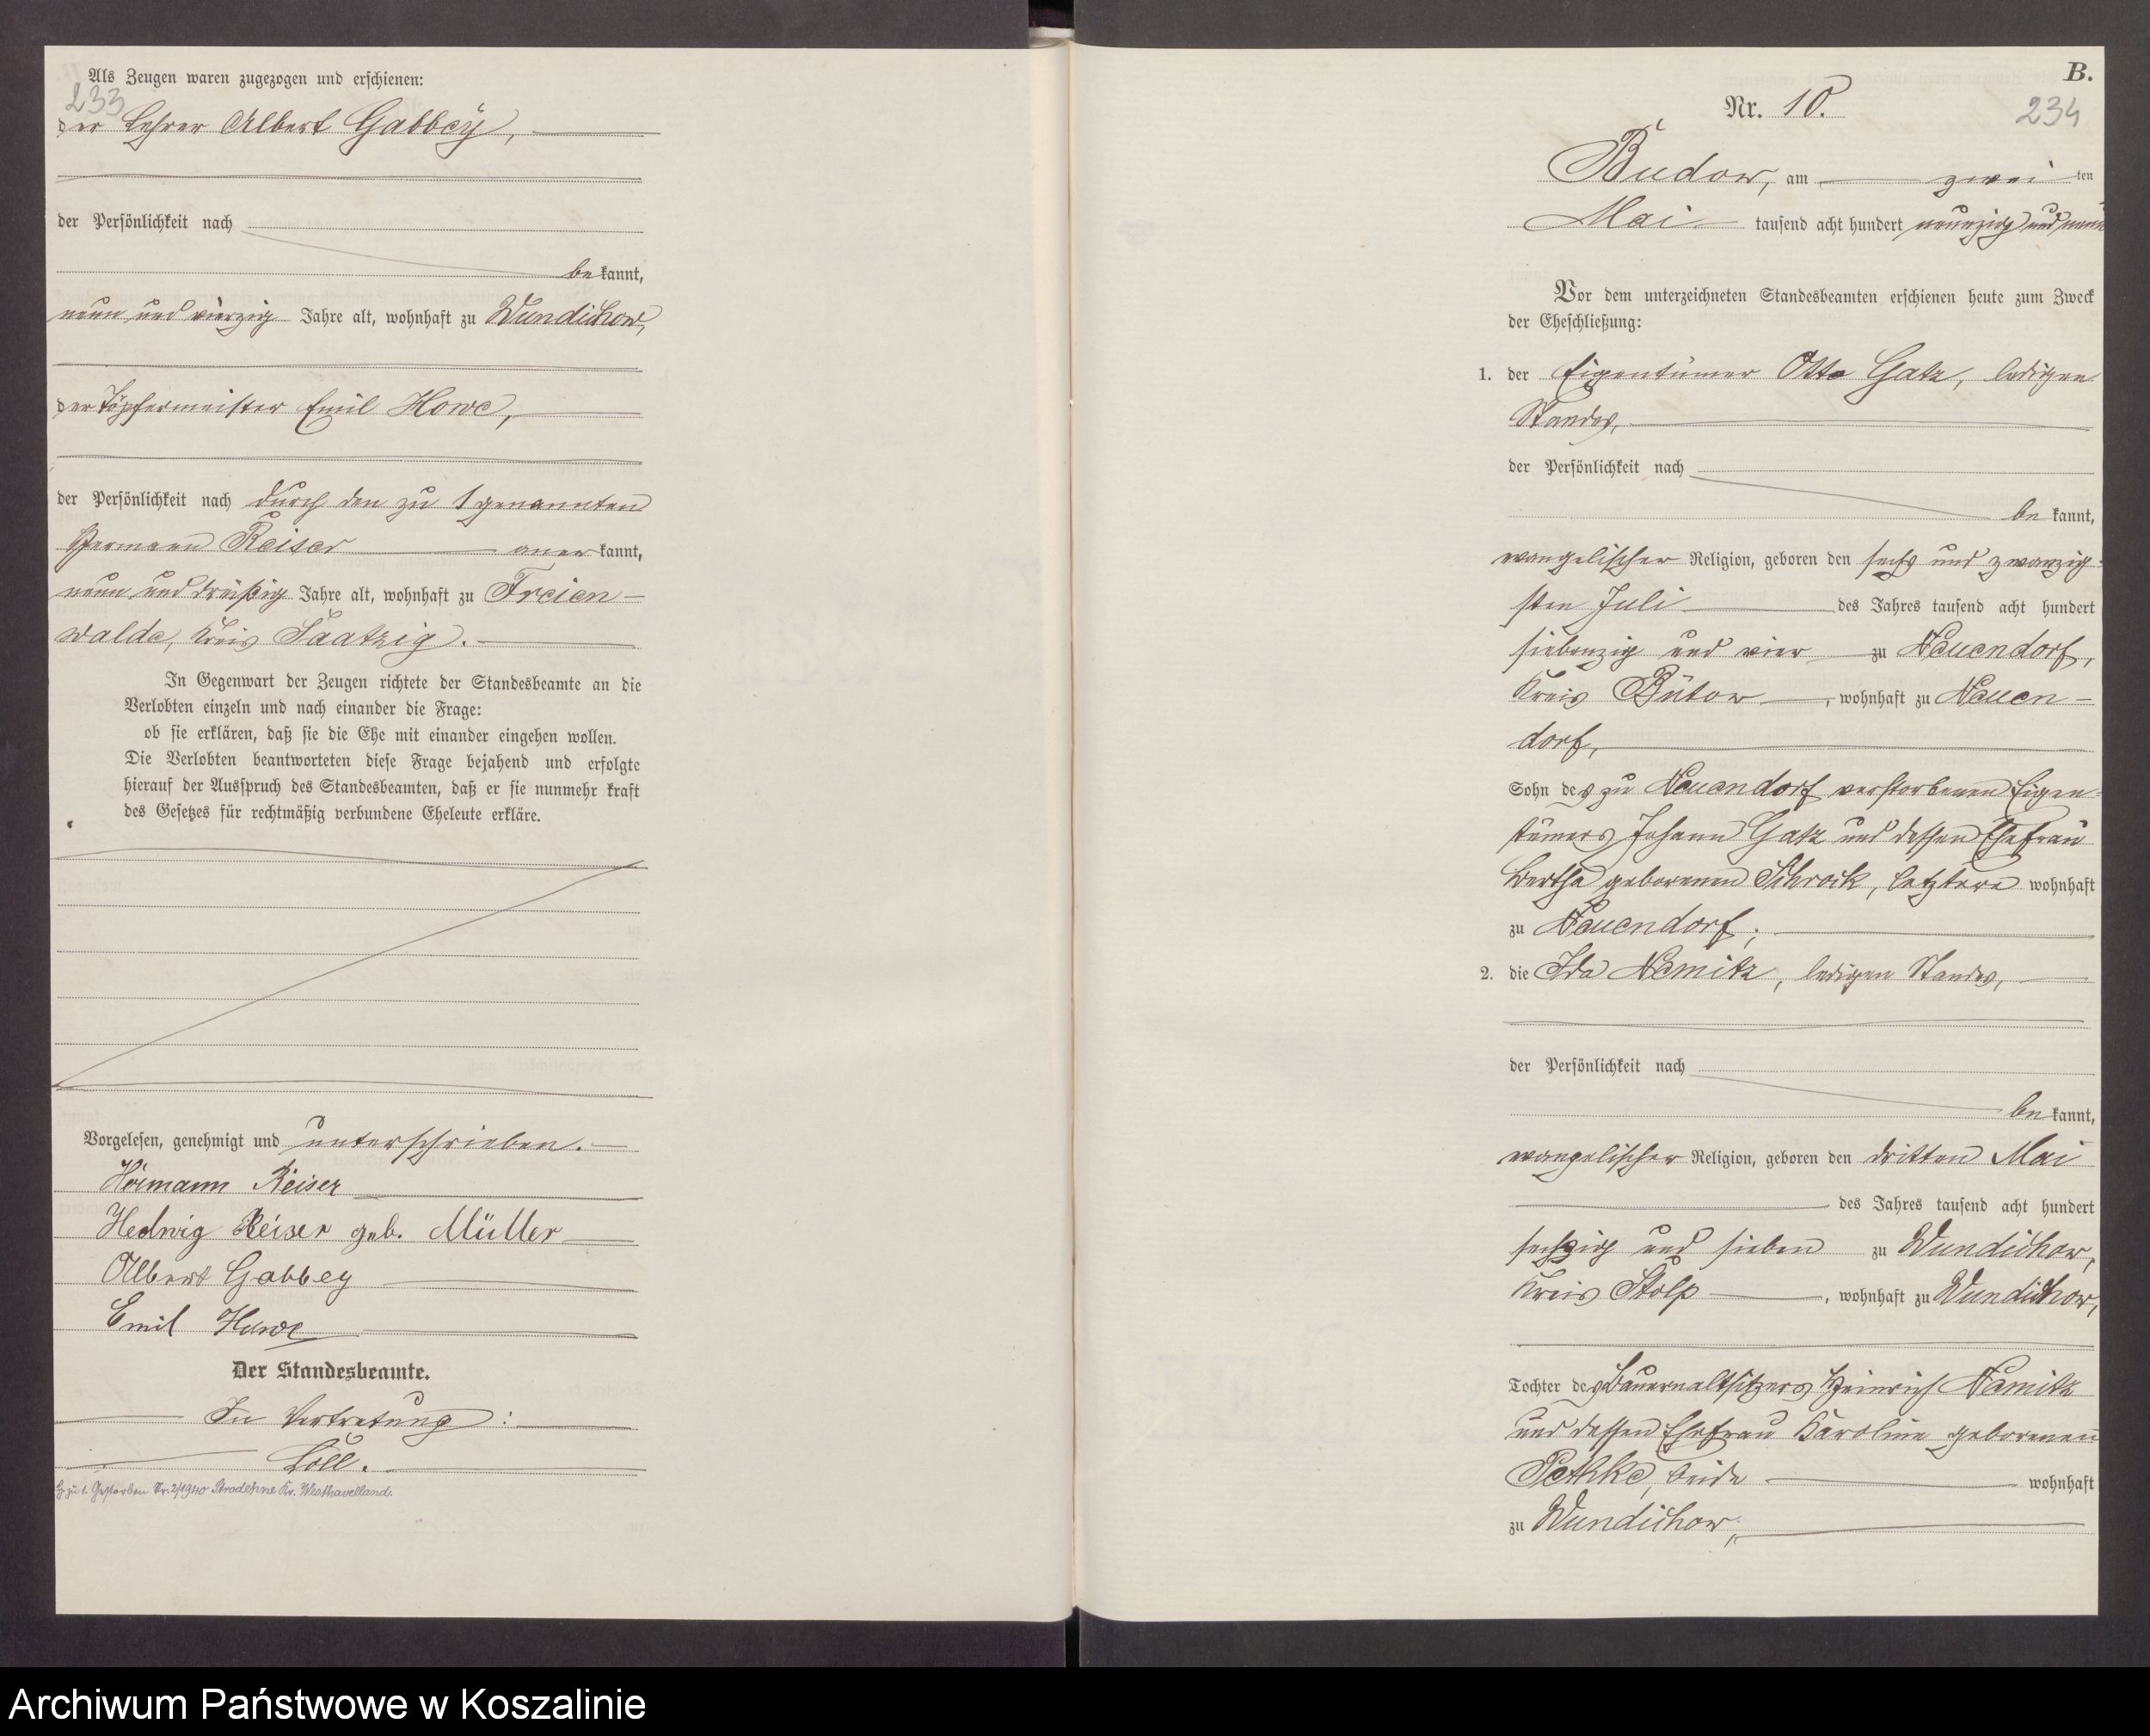 Als Zeugen waren zugezogen und erschienen:
233
der Lehrer Albert Gabbey,
der Persönlichkeit nach
bekannt,
neun und vierzig Jahre alt, wohnhaft zu Wundichow,
der Töpfermeister Emil Howe,
der Persönlichkeit nach durch den zu 1 genannten
Hermann Reiser anerkannt,
neun und dreißig Jahre alt, wohnhaft zu Freien-
walde, Kreis Saatzig.
In Gegenwart der Zeugen richtete der Standesbeamte an die
Verlobten einzeln und nach einander die Frage:
ob sie erklären, daß sie die Ehe mit einander eingehen wollen.
Die Verlobten beantworteten diese Frage bejahend und erfolgte
hierauf der Ausspruch des Standesbeamten, daß er sie nunmehr kraft
des Gesetzes für rechtmäßig verbundene Eheleute erkläre.
Vorgelesen, genehmigt und unterschrieben.
Hermann Reiser
Hedwig Reiser geb. Müller
Albert Gabbey
Emil Howe
Der Standesbeamte.
In Vertretung:
Löll.
zu 1. Gestorben Nr. 2/1940 Strodehne Kr. Westhavelland.
B.
Nr. 10.
234
Budow, am zwei ten
Mai tausend acht hundert neunzig und neun
Vor dem unterzeichneten Standesbeamten erschienen heute zum Zweck
der Eheschließung:
1. der Eigentümer Otto Gatz, ledigen
Standes,
der Persönlichkeit nach
bekannt,
evangelischer Religion, geboren den sechs und zwanzig-
sten Juli des Jahres tausend acht hundert
siebenzig und vier zu Neuendorf,
Kreis Bütow, wohnhaft zu Neuen-
dorf,
Sohn des zu Neuendorf verstorbenen Eigen-
tümers Johann Gatz und dessen Ehefrau
Bertha geborenen Schrock, letztere wohnhaft
zu Neuendorf;
2. die Ida Nemitz, ledigen Standes,
der Persönlichkeit nach
bekannt,
evangelischer Religion, geboren den dritten Mai
des Jahres tausend acht hundert
sechzig und sieben zu Wundichow,
Kreis Stolp, wohnhaft zu Wundichow,
Tochter des Bauernaltsitzers Heinrich Nemitz
und dessen Ehefrau Karoline geborenen
Pethke, beide wohnhaft
zu Wundichow,
Archiwum Państwowe w Koszalinie